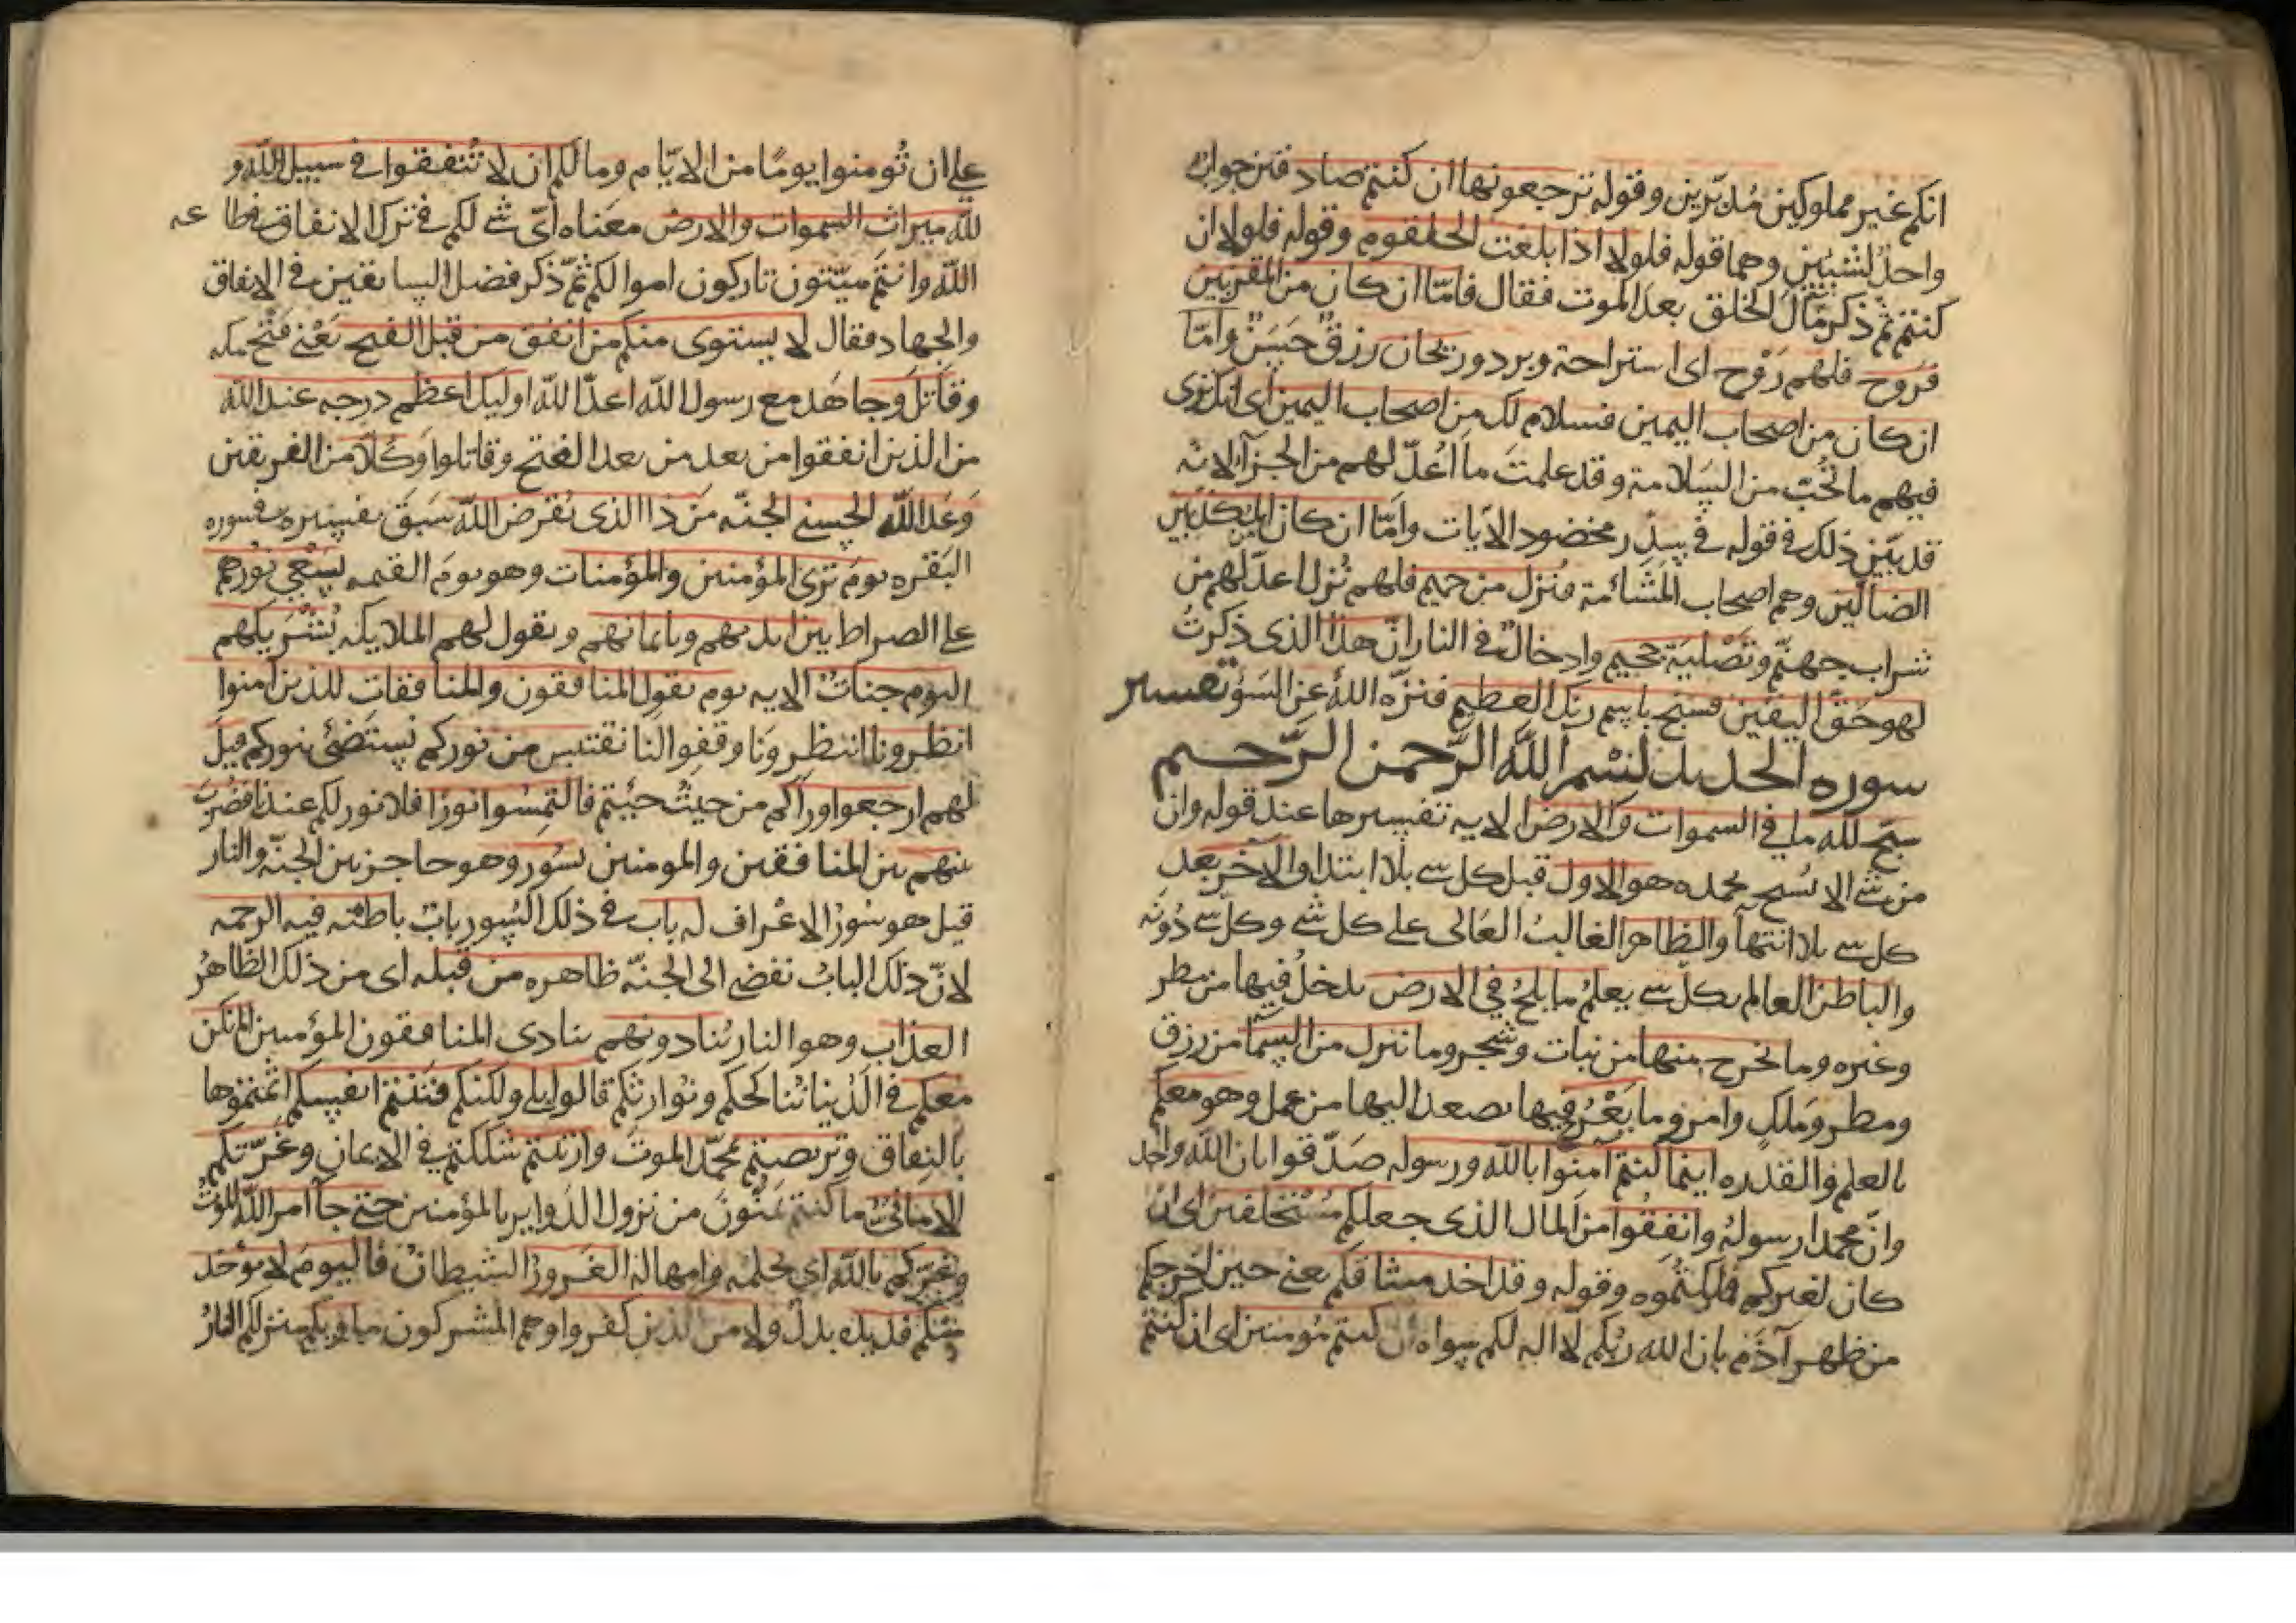 انكم غير مملوكين مُدَبّرين وقوله ترجعونها ان كنتم صادقين جواب
واحدٌ لشيئين وهما قوله فلولا اذا بلغت الحلقوم وقوله فلولا ان
كنتم ثمّ ذكر مآل الخلق بعد الموت فقال فامّا ان كان من المقربين
فروح فلهم رَوْح اى استراحة وبرد وريحان رزق حسن وامّا
ان كان من اصحاب اليمين فسلام لك من اصحاب اليمين اى انك ترى
فيهم ما تحُبّ من السلامة وقد علمتَ ما اُعدّ لهم من الجزآ لانه
قد بيّن ذلك فى قوله فى سِدْر مخضود الايات وامّا ان كان من المكذبين
الضالّين وهم اصحاب المَشْأمة فنزل من حميم فلهم نُزل اعدّ لهم من
شراب جهنّم وتَصْلِيَة جحيم وادخالٌ فى النار انّ هذا الذى ذكرتُ
لهو حَقّ اليقين فسبّح باسم ربك العظيم فنزّه اللهَ عن السَوْء تفسير
سوره الحديد بسم الله الرَّحمن الرَّحيم
سبّح لله ما في السموات والارض الايه تفسيرها عند قوله وان
من شئ الا يُسبح بحمده هو الاول قبل كل شے بلا ابتدا والآخر بعد
كل شے بلا انتهآ والظاهر الغالبُ العَالى على كل شے وكل شے دُونَه
والباطن العالم بكل شے يعلمُ ما يلجُ في الارض يدخلُ فيها من مطر
وغيره وما يخرج منها من نبات وشجر وما ينزل من السَمآ من رزق
ومطر ومَلكٍ وامرٍ وما يَعْرُج فيها يصعد اليها من عمل وهو معكم
بالعلم والقدره اينما كنتم آمِنوا بالله ورسوله صَدّقوا بان الله واحد
وانّ محمدا رسوله وانفِقُوا من المال الذى جعلكم مُسْتخلفين اى ان
كان لغيركم فملكتموه وقوله وقد اخذ ميثاقكم يعنى حين اخرجكم
من ظهر آدَم بان الله ربّكم لا اله لكم سواه ان كنتم مؤمنين اى ان كنتم
على ان تُؤمنوا يومًا من الايّام وما لكم ان لا تُنفقوا فى سبيل الله و
لله ميراث السموات والارض معناه اىّ شے لكم فى ترك الانفاق فى طاعه
الله وانتم ميّتون تاركون اموالكم ثمّ ذكر فضل السابقين فى الانفاق
والجهاد فقال لا يستوى منكم من انفق من قبل الفتح يَعْنى فتْح مكه
وقاتل وجاهَد مع رسول الله اعدآ الله اوليك اعظم درجه عند الله
من الذين انفقوا من بعد من بعد الفتح وقاتلوا وكُلًّا من الفريقين
وَعَد اللهُ الحسنى الجنّه مَن ذا الذى يُقرض الله سَبَق تفسيره فى سوره
البَقَره يومَ ترَى المؤمنين والمؤمنات وهو يومَ القيمه يَسْعى نورهم
على الصراط بين ايديهم وبايمانهم ويقول لهم الملايكه بُشْريكُم
اليوم جنات الايه يوم يقول المنافقون والمنافقات للذين آمنوا
انظرونا انتظرونا وقفوا لنا نقتبس من نوركم نستضئ بنوركم قيل
لهم ارجعوا ورآكم من حيثُ جيتم فالتمسُوا نورًا فلا نور لكم عندنا فضُرب
بينهم بين المنافقين والمومنين بسُور وهو حاجز بين الجنّه والنار
قيل هو سورُ الاعْراف له باب فى ذلك السُور بابٌ باطنه فيه الرحمه
لانّ ذلك البابُ يفضى الى الجنّه ظاهره من قبله اى من ذلك الظاهُر
العذاب وهو النار يُنادونهم ينادى المنافقون المؤمنين الم نكن
معكم فى الدُنيا نُناكحكم ونُوارثكم قالوا بلى ولكنكم فَتَنْتم انفسكم اثمتموها
بالنفاق وتربصتم بمحمّد الموتَ وارتبتم شككتم فى الايمان وغَرّتكم
الامانىّ ما كنتم تمنّون من نزول الدَواير بالمؤمنين حتى جآ امر الله الموتُ
وغرّكم بالله اى بحلمه وامهاله الغَرورُ الشيطانُ فاليومَ لا يؤخذ
منكم فديه بدلٌ ولا من الذين كفروا وهم المشركون ماويكم منزلكم النارُ